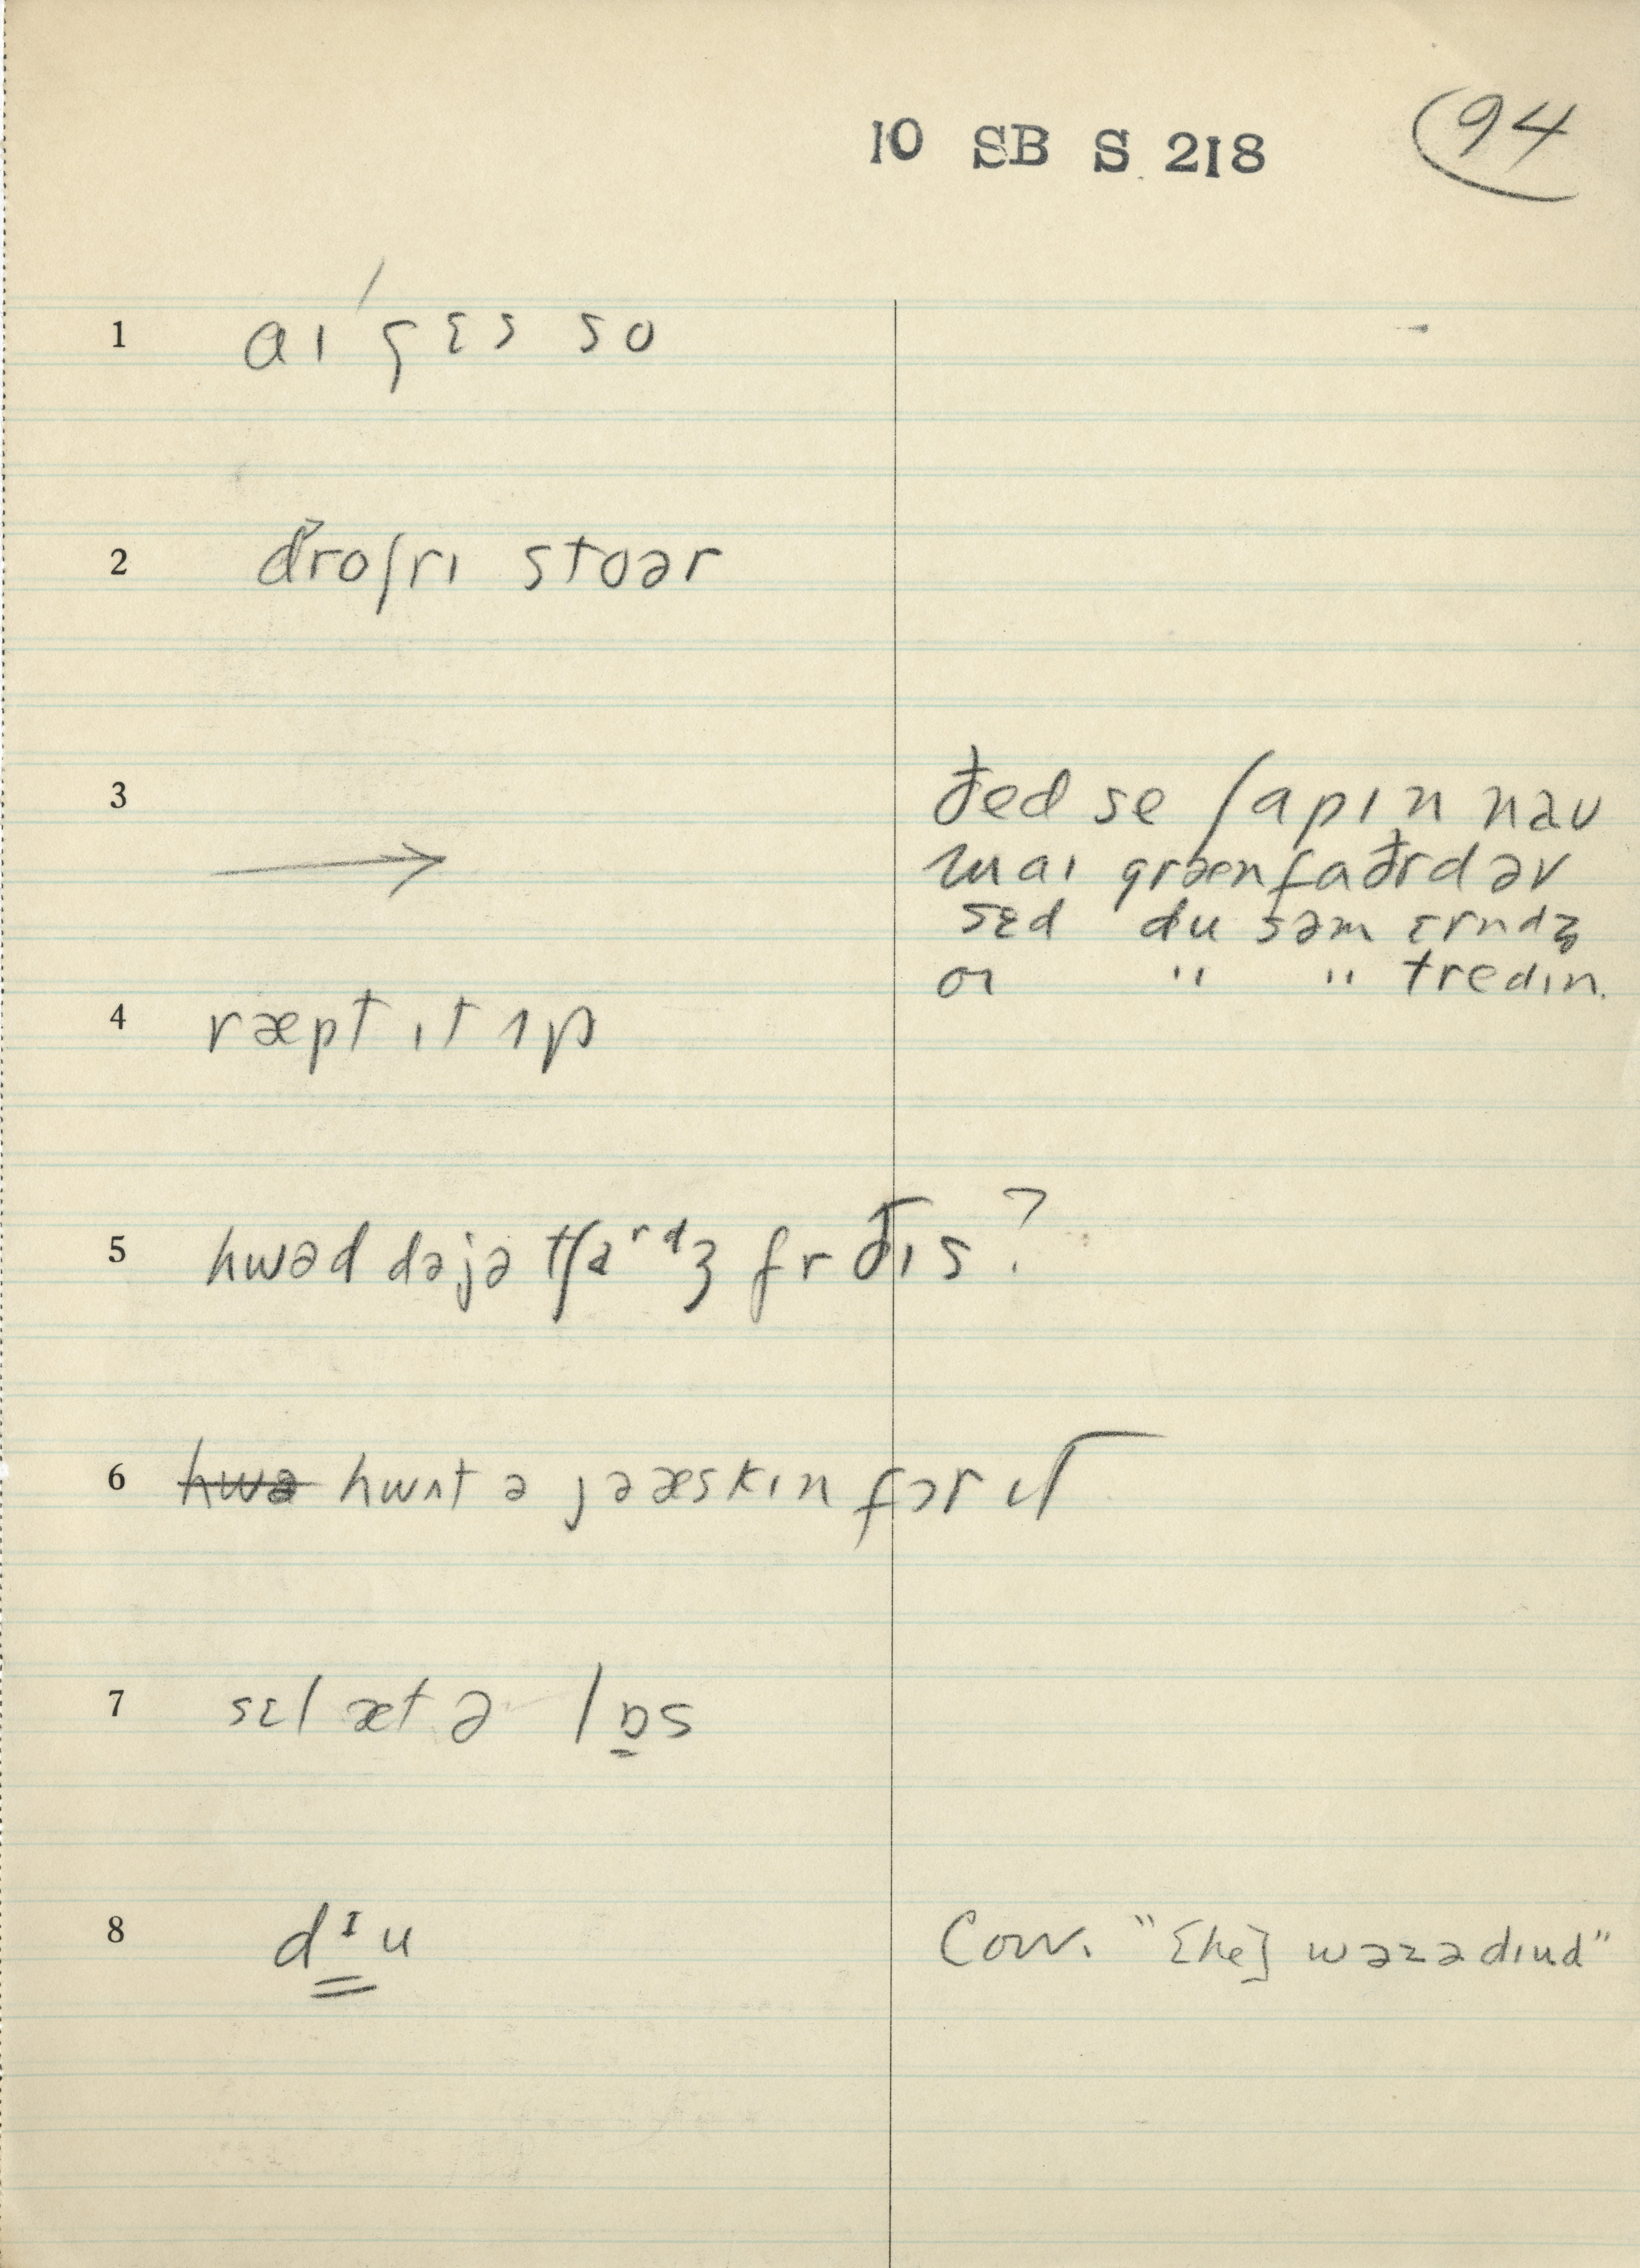 10 SB S 218
94
1 aɪ gɛs so
2 ðroʃrɪ stoər
3 → ðed se ʃapɪn naʊ
maɪ grænfaðrd əv
sɛd du səm ɛrndz
or " " tredɪn.
4 ræpt ɪt ʌp
5 hwəd dəjə tʃaʳᵈʒ fr ðɪs?
6 hwə hwʌt ə jə æskɪn fər ɪt
7 sɛl æt ə lɒs
8 dᴵu
Conv. "[he] wəzə dɪud"